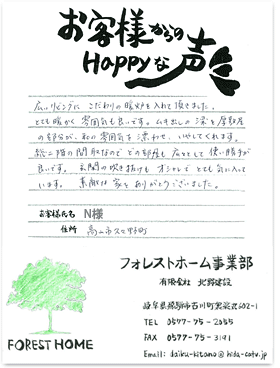 お客様からの
Happyな声
広いリビングに こだわりの暖炉を入れて頂きました。
とても暖かく 雰囲気も良いです。むき出しの 梁と屋根裏
の部分が、和の雰囲気を漂わせ、いやしてくれます。
総二階の間取なので どの部屋も 広々として 使い勝手が
良いです。 玄関の吹き抜けも オシャレで とても気に入って
います。 素敵な 家を ありがとうございました。
お客様氏名 N様
住所 高山市
フォレストホーム事業部
有限会社 北野建設
岐阜県飛騨市古川町
TEL 0577-75-2055
FAX 0577-75-3191
Email: daiku-kitano@hida-catv.jp
FOREST HOME